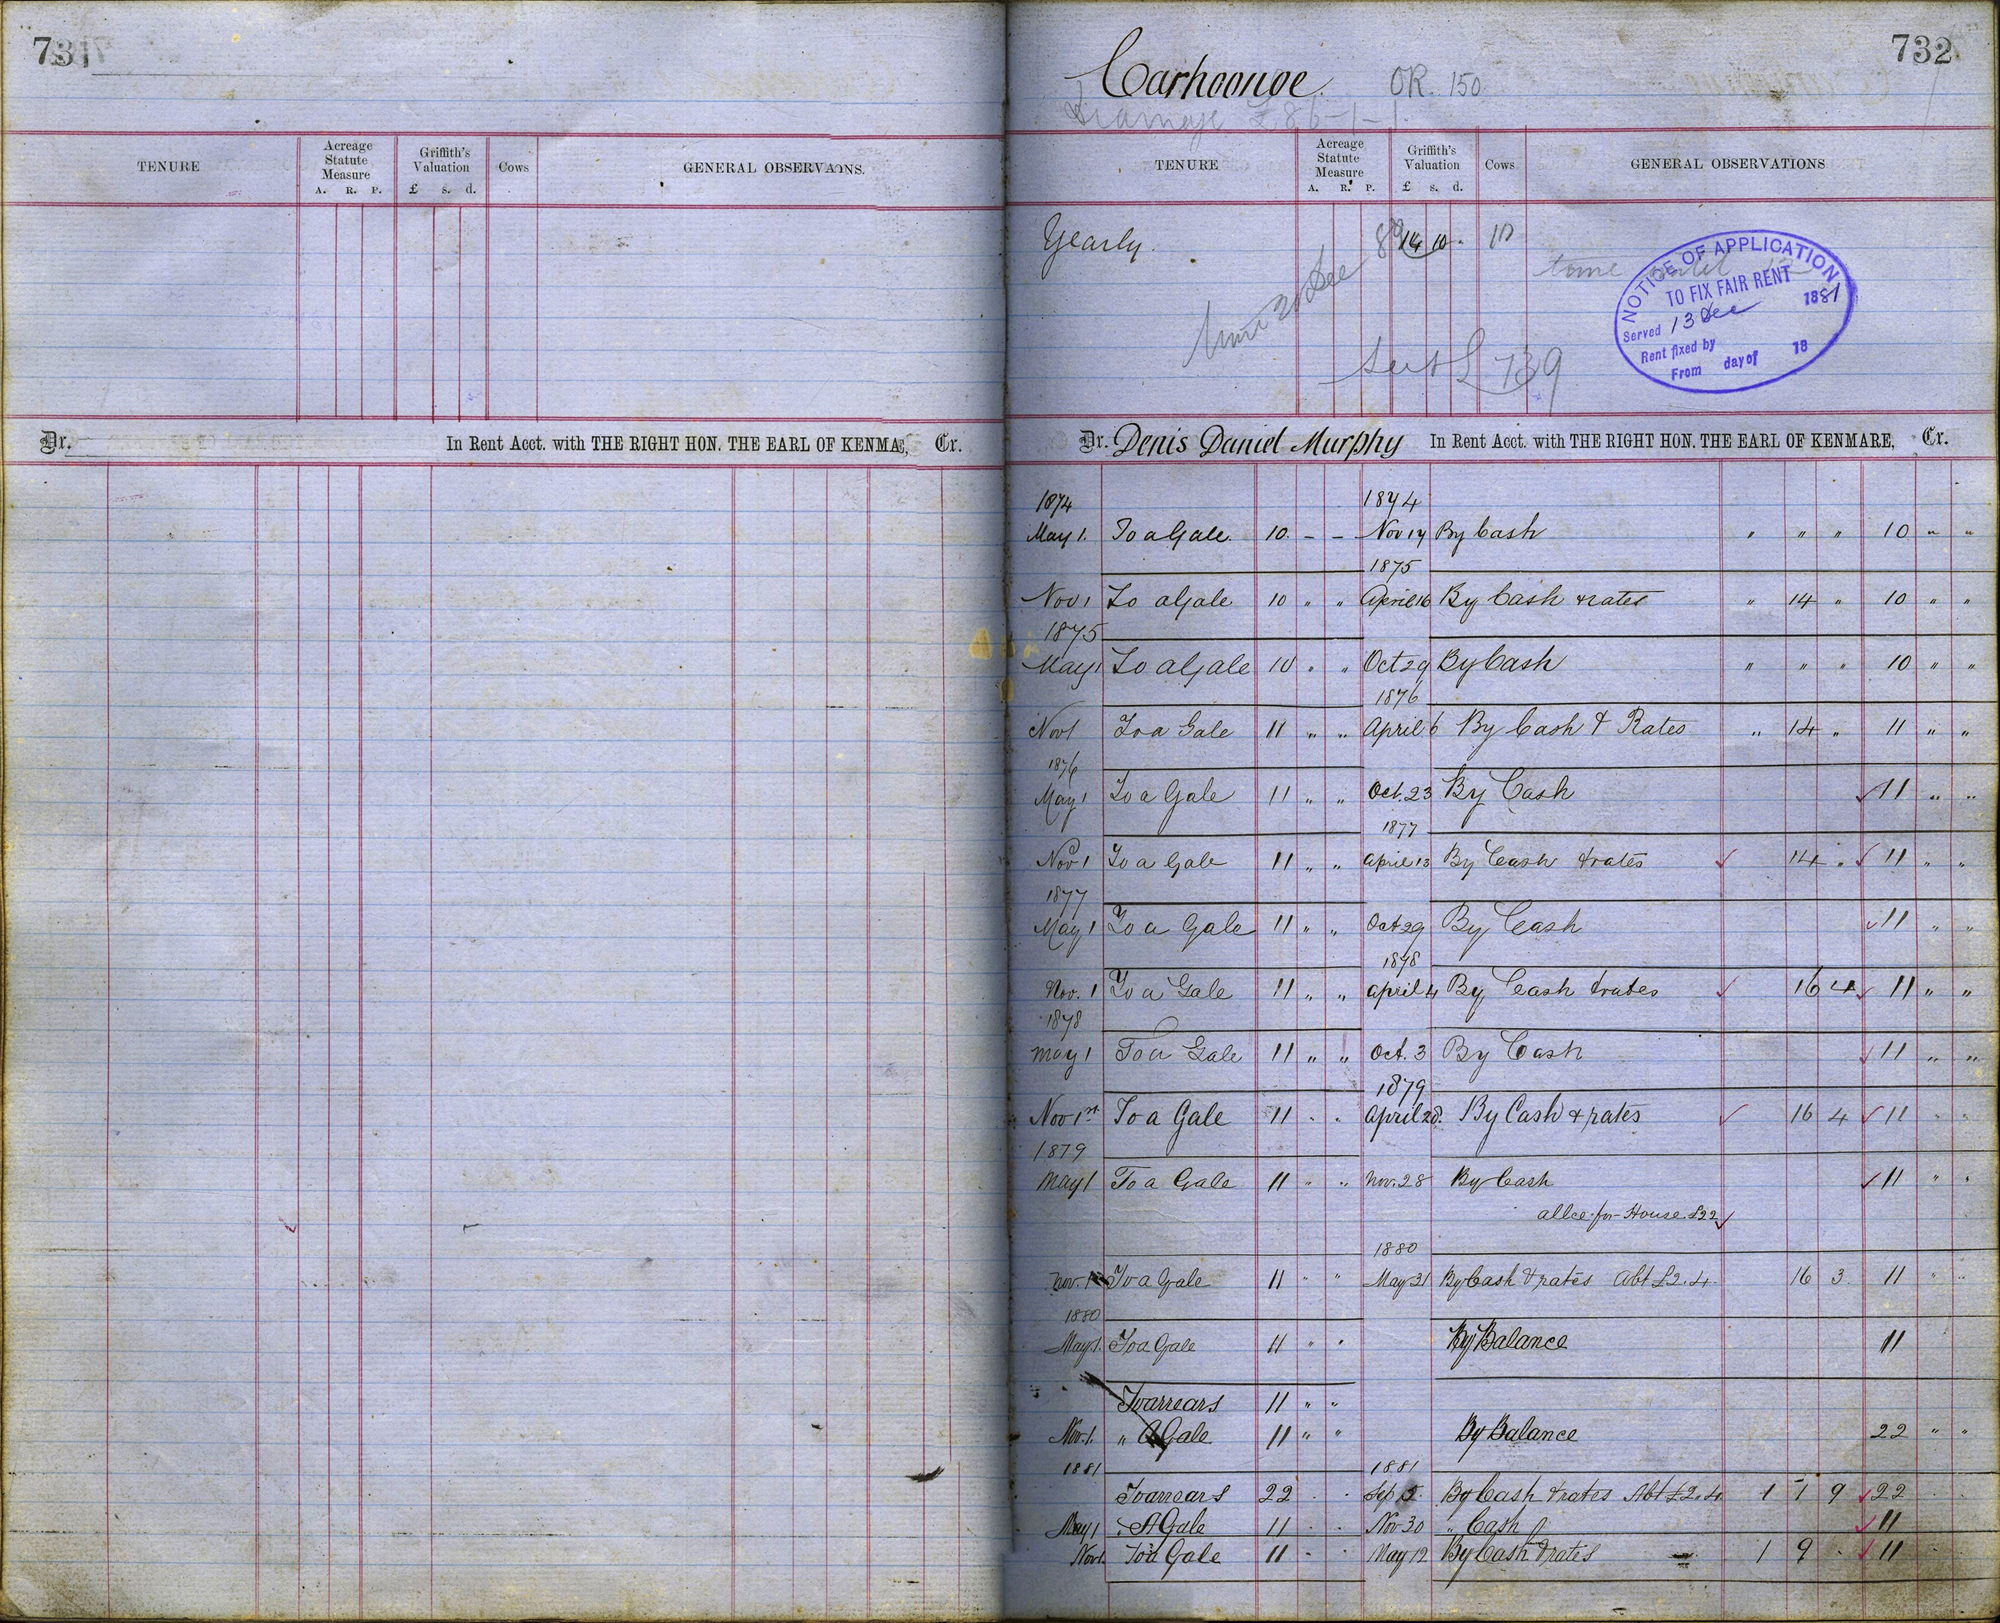 731
TENURE
Acreage Statute Measure
A. R. P.
Griffith's Valuation
£ s. d.
Cows
GENERAL OBSERVAONS.
Dr. In Rent Acct. with THE RIGHT HON. THE EARL OF KENMA , Cr.
732
Carhoonoe. OR. 150
Drainage £86-1-1
TENURE
Acreage Statute Measure
A. R. P.
Griffith's Valuation
£ s. d.
Cows
GENERAL OBSERVATIONS
Yearly. 14 10 - 10
NOTICE OF APPLICATION
TO FIX FAIR RENT
Served 13 Dec 1881
Rent fixed by
From day of 18
739
Dr. Denis Daniel Murphy In Rent Acct. with THE RIGHT HON. THE EARL OF KENMARE, Cr.
1874 1874
May 1. To a Gale 10. - - Nov 17 By Cash " " " 10 " "
1875
Nov 1 To a Gale 10 " " April 16 By Cash & rates " 14 " 10 " "
1875
May 1 To a Gale 10 " " Oct 29 By Cash " " " 10 " "
1876
Nov 1 To a Gale 11 " " April 6 By Cash & Rates " 14 " 11 " "
1876
May 1 To a Gale 11 " " Oct. 23 By Cash 11 " "
1877
Nov 1 To a Gale 11 " " April 13 By Cash & rates 14 " 11 " "
1877
May 1 To a Gale 11 " " Oct 29 By Cash 11 " "
1878
Nov. 1 To a Gale 11 " " April 4 By Cash & rates 16 4 11 " "
1878
May 1 To a Gale 11 " " Oct. 3 By Cash 11 " "
1879
Nov 1st To a Gale 11 " " April 28. By Cash & rates 16 4 11 " "
1879
May 1 To a Gale 11 " " Nov. 28 By Cash 11 " "
allce for House £22
1880
Nov. 1 To a Gale 11 " " May 31 By Cash & rates Abt £2.4 16 3 11 " "
1880
May 1. To a Gale 11 " " By Balance 11
To arrears 11 " "
Nov. 1. " A Gale 11 " " By Balance 22 " "
1881 1881
To arrears 22 . . Sep By Cash & rates Abt £2.4 1 7 9 22 . .
May 1 " A Gale 11 . . Nov 30 " Cash 11
Nov 1 To a Gale 11 . . May 12 By Cash & rates 1 9 . 11